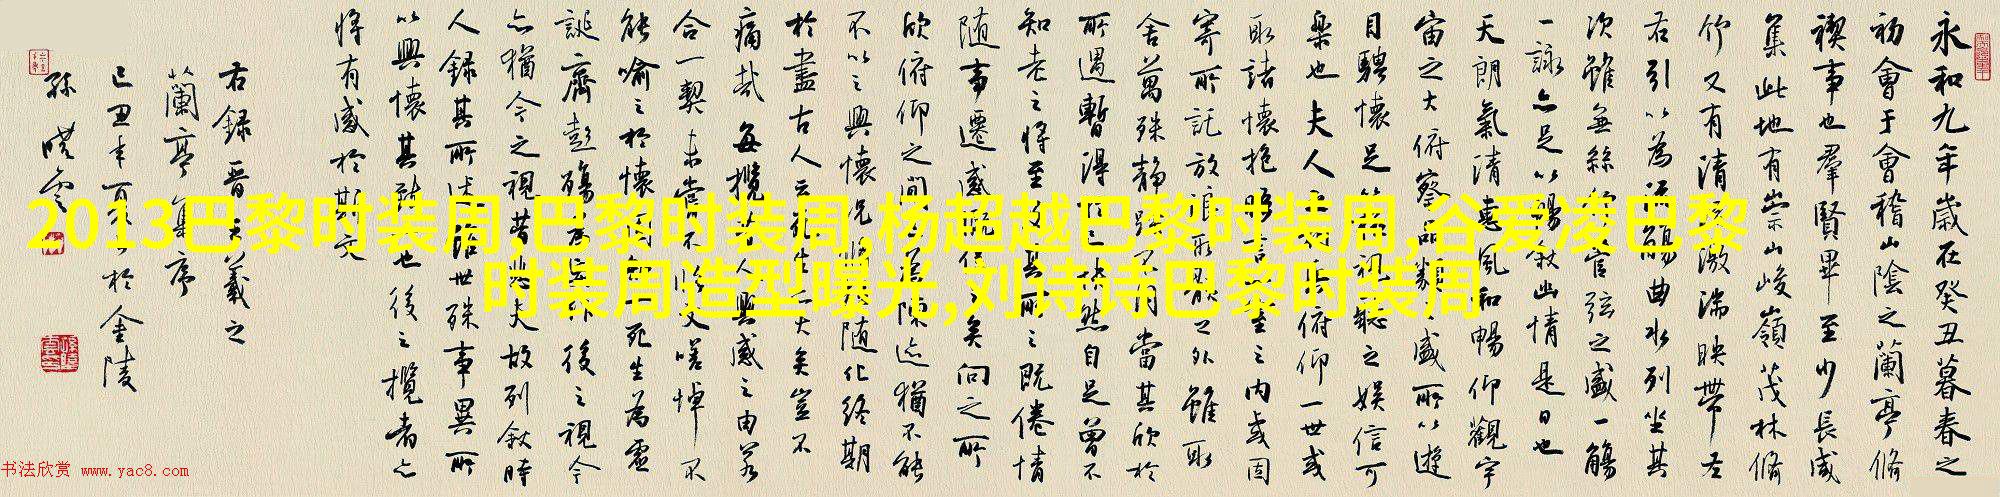 永和九年歲在癸丑暮春之
初會于會稽山陰之蘭亭脩
禊事也羣賢畢至少長咸
集此地有崇山峻嶺茂林脩
竹又有清流激湍映帶左
右引以為流觴曲水列坐其
次雖無絲竹管弦之盛一觴
一詠亦足以暢敘幽情是日也
天朗氣清惠風和暢仰觀宇
宙之大俯察品類之盛所以遊
目騁懷足以極視聽之娛信可
樂也夫人之相與俯仰一世或
取諸懷抱悟言一室之內或因
寄所託放浪形骸之外雖取
舍萬殊靜躁不同當其欣於
所遇暫得於己快然自足曾不
知老之將至及其所之既倦情
隨事遷感慨係之矣向之所
欣俯仰之間以為陳迹猶不能
不以之興懷況脩短隨化終期
於盡古人云死生亦大矣豈不
痛哉每攬昔人興感之由若
合一契未嘗不臨文嗟悼不
能喻之於懷固知一死生為虛
誕齊彭殤為妄作後之視今
亦猶今之視昔悲夫故列敘時
人錄其所述雖世殊事異所
以興懷其致一也後之攬者亦
將有感於斯文
右錄晉王羲之
蘭亭集序
己丑年夏於金陵
孫曉雲
2013巴黎时装周,巴黎时装周,杨超越巴黎时装周,谷爱凌巴黎
时装周造型曝光,刘诗诗巴黎时装周
书法欣赏 www.yac8.com